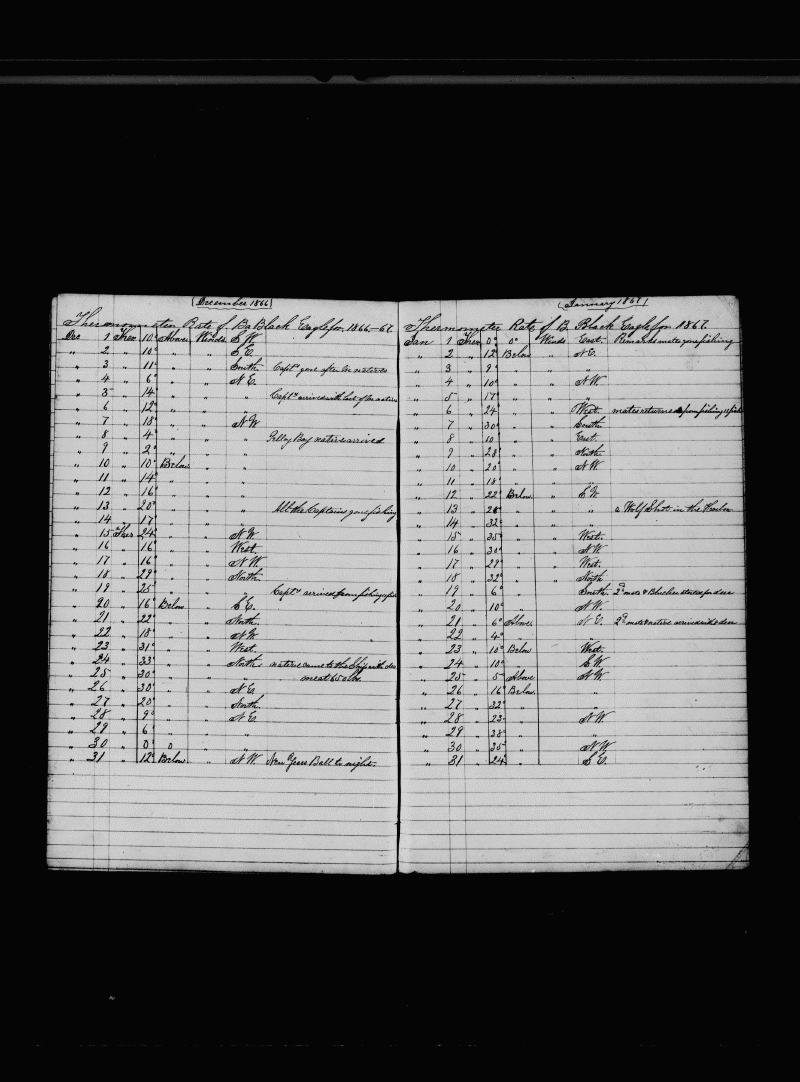 (December 1866)
Thermometer Rate of Ba Black Eagle for 1866-67.
Dec 1 Ther 10° Above Winds S.W
" 2 " 10° " " S.E.
" 3 " 11° " " South Capt" gone after natives
" 4 " 6° " " N.E.
" 5 " 14° " " " Capt" arrived with lot of natives
" 6 " 12° " " "
" 7 " 18° " " N.W
" 8 " 4° " " " Bay natives arrived
" 9 " 2° " " "
" 10 " 10° Below " "
" 11 " 14° " " "
" 12 " 16° " " "
" 13 " 20° " " " All the Captains gone fishing
" 14 " 17° " " "
" 15 Ther 24° " " N.W
" 16 " 16° " " West.
" 17 " 16° " " N.W
" 18 " 29° " " North
" 19 " 25° " " " Capt" arrived from fishing
" 20 " 16° Below " S.E.
" 21 " 22° " " North
" 22 " 18° " " N.W
" 23 " 31° " " West.
" 24 " 33° " " North natives came to the Ship with
" 25 " 30° " " " meat 650
" 26 " 30° " " N.E.
" 27 " 20° " " South
" 28 " 9° " " N.E.
" 29 " 6° " " "
" 30 " 0° 0 " "
" 31 " 12° Below " N.W. New Years Ball to night.
(January 1867)
Thermometer Rate of B. Black Eagle for 1867.
Jan 1 Ther 0° 0° Winds East. Remarks mate gone fishing
" 2 " 12° Below " N.E.
" 3 " 9° " " "
" 4 " 10° " " N.W
" 5 " 17° " " "
" 6 " 24° " West. mates returned from fishing
" 7 " 30° " South
" 8 " 10 " East.
" 9 " 28° " North
" 10 " 20° " N.W
" 11 " 18° " "
" 12 " 22° Below " S.W
" 13 " 28° " " a Wolf Shot in the Harbor
" 14 " 32° " "
" 15 " 35° " West.
" 16 " 30° " N.W.
" 17 " 29° " West.
" 18 " 32° " North
" 19 " 6° " South 2d mate & started for deer
" 20 " 10° " N.W.
" 21 " 6° Above " N.E. 2d mate & natives arrived with deer
" 22 " 4° " "
" 23 " 10° Below West.
" 24 " 10° " S.W
" 25 " 5° Above N.W
" 26 " 16° Below. "
" 27 " 32° " "
" 28 " 23° " N.W
" 29 " 38° " "
" 30 " 35° " N.W
" 31 " 24° " S.E.